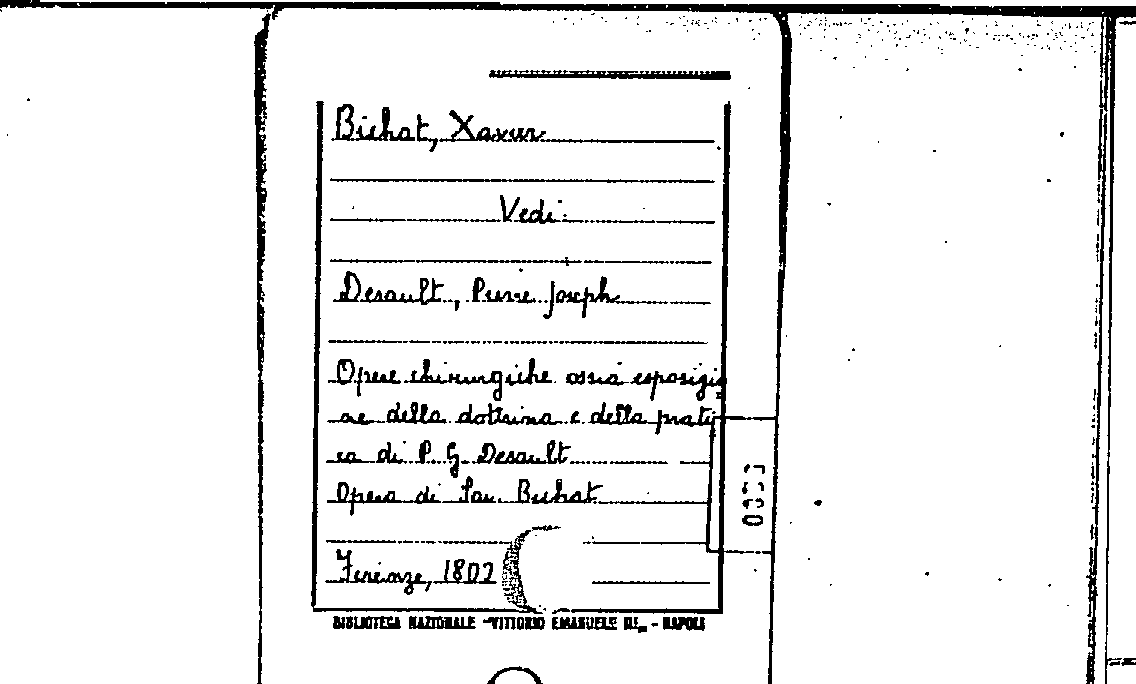 Bichat, Xavier
Vedi:
Desault, Pierre Joseph
Opere chirurgiche ossia esposizio
ne della dottrina e della prati
ca di P. G. Desault
Opera di Sav. Bichat
Firenze, 1802
BIBLIOTECA NAZIONALE "VITTORIO EMANUELE III„ - NAPOLI